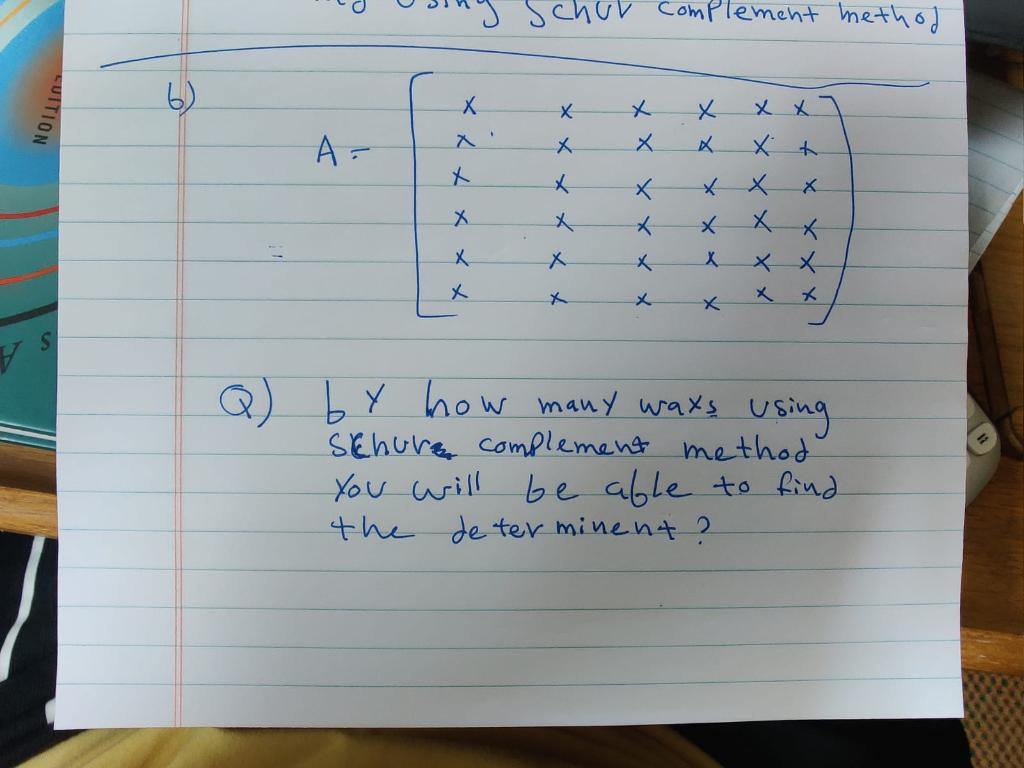 Using Schur complement method
b)
A =
x x x x x x
x x x x x x
x x x x x x
x x x x x x
=
x x x x x x
x x x x x x
Q) by how many ways using
schure complement method
You will be able to find
the determinent?
EDITION
S A